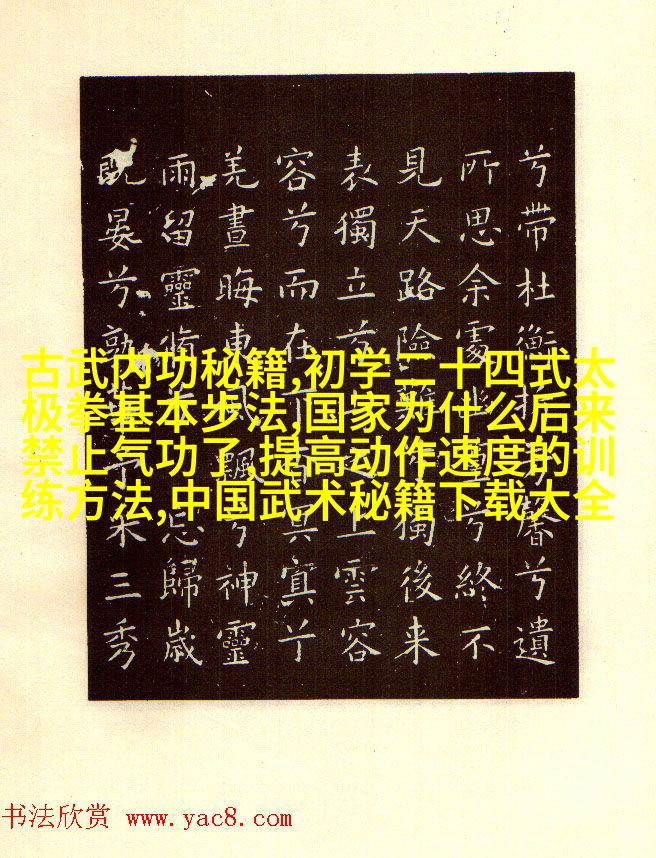 古武内功秘籍,初学二十四式太
极拳基本步法,国家为什么后来
禁止气功了,提高动作速度的训
练方法,中国武术秘籍下载大全
兮帶杜衡折芳馨兮遺
所思余處幽篁兮終不
見天路險難兮獨後来
表獨立兮山之上雲容
容兮而在下杳冥冥兮
羌晝晦東風飄兮神靈
雨留靈脩兮憺忘歸歲
既晏兮孰華予采三秀
书法欣赏 www.yac8.com